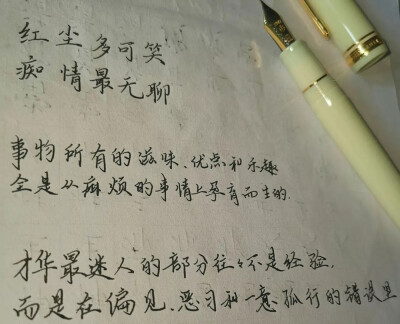 红尘多可笑
痴情最无聊
事物所有的滋味、优点和乐趣
全是从麻烦的事情上孕育而生的.
才华最迷人的部分往々不是经验,
而是在偏见、恶习和一意孤行的错误里